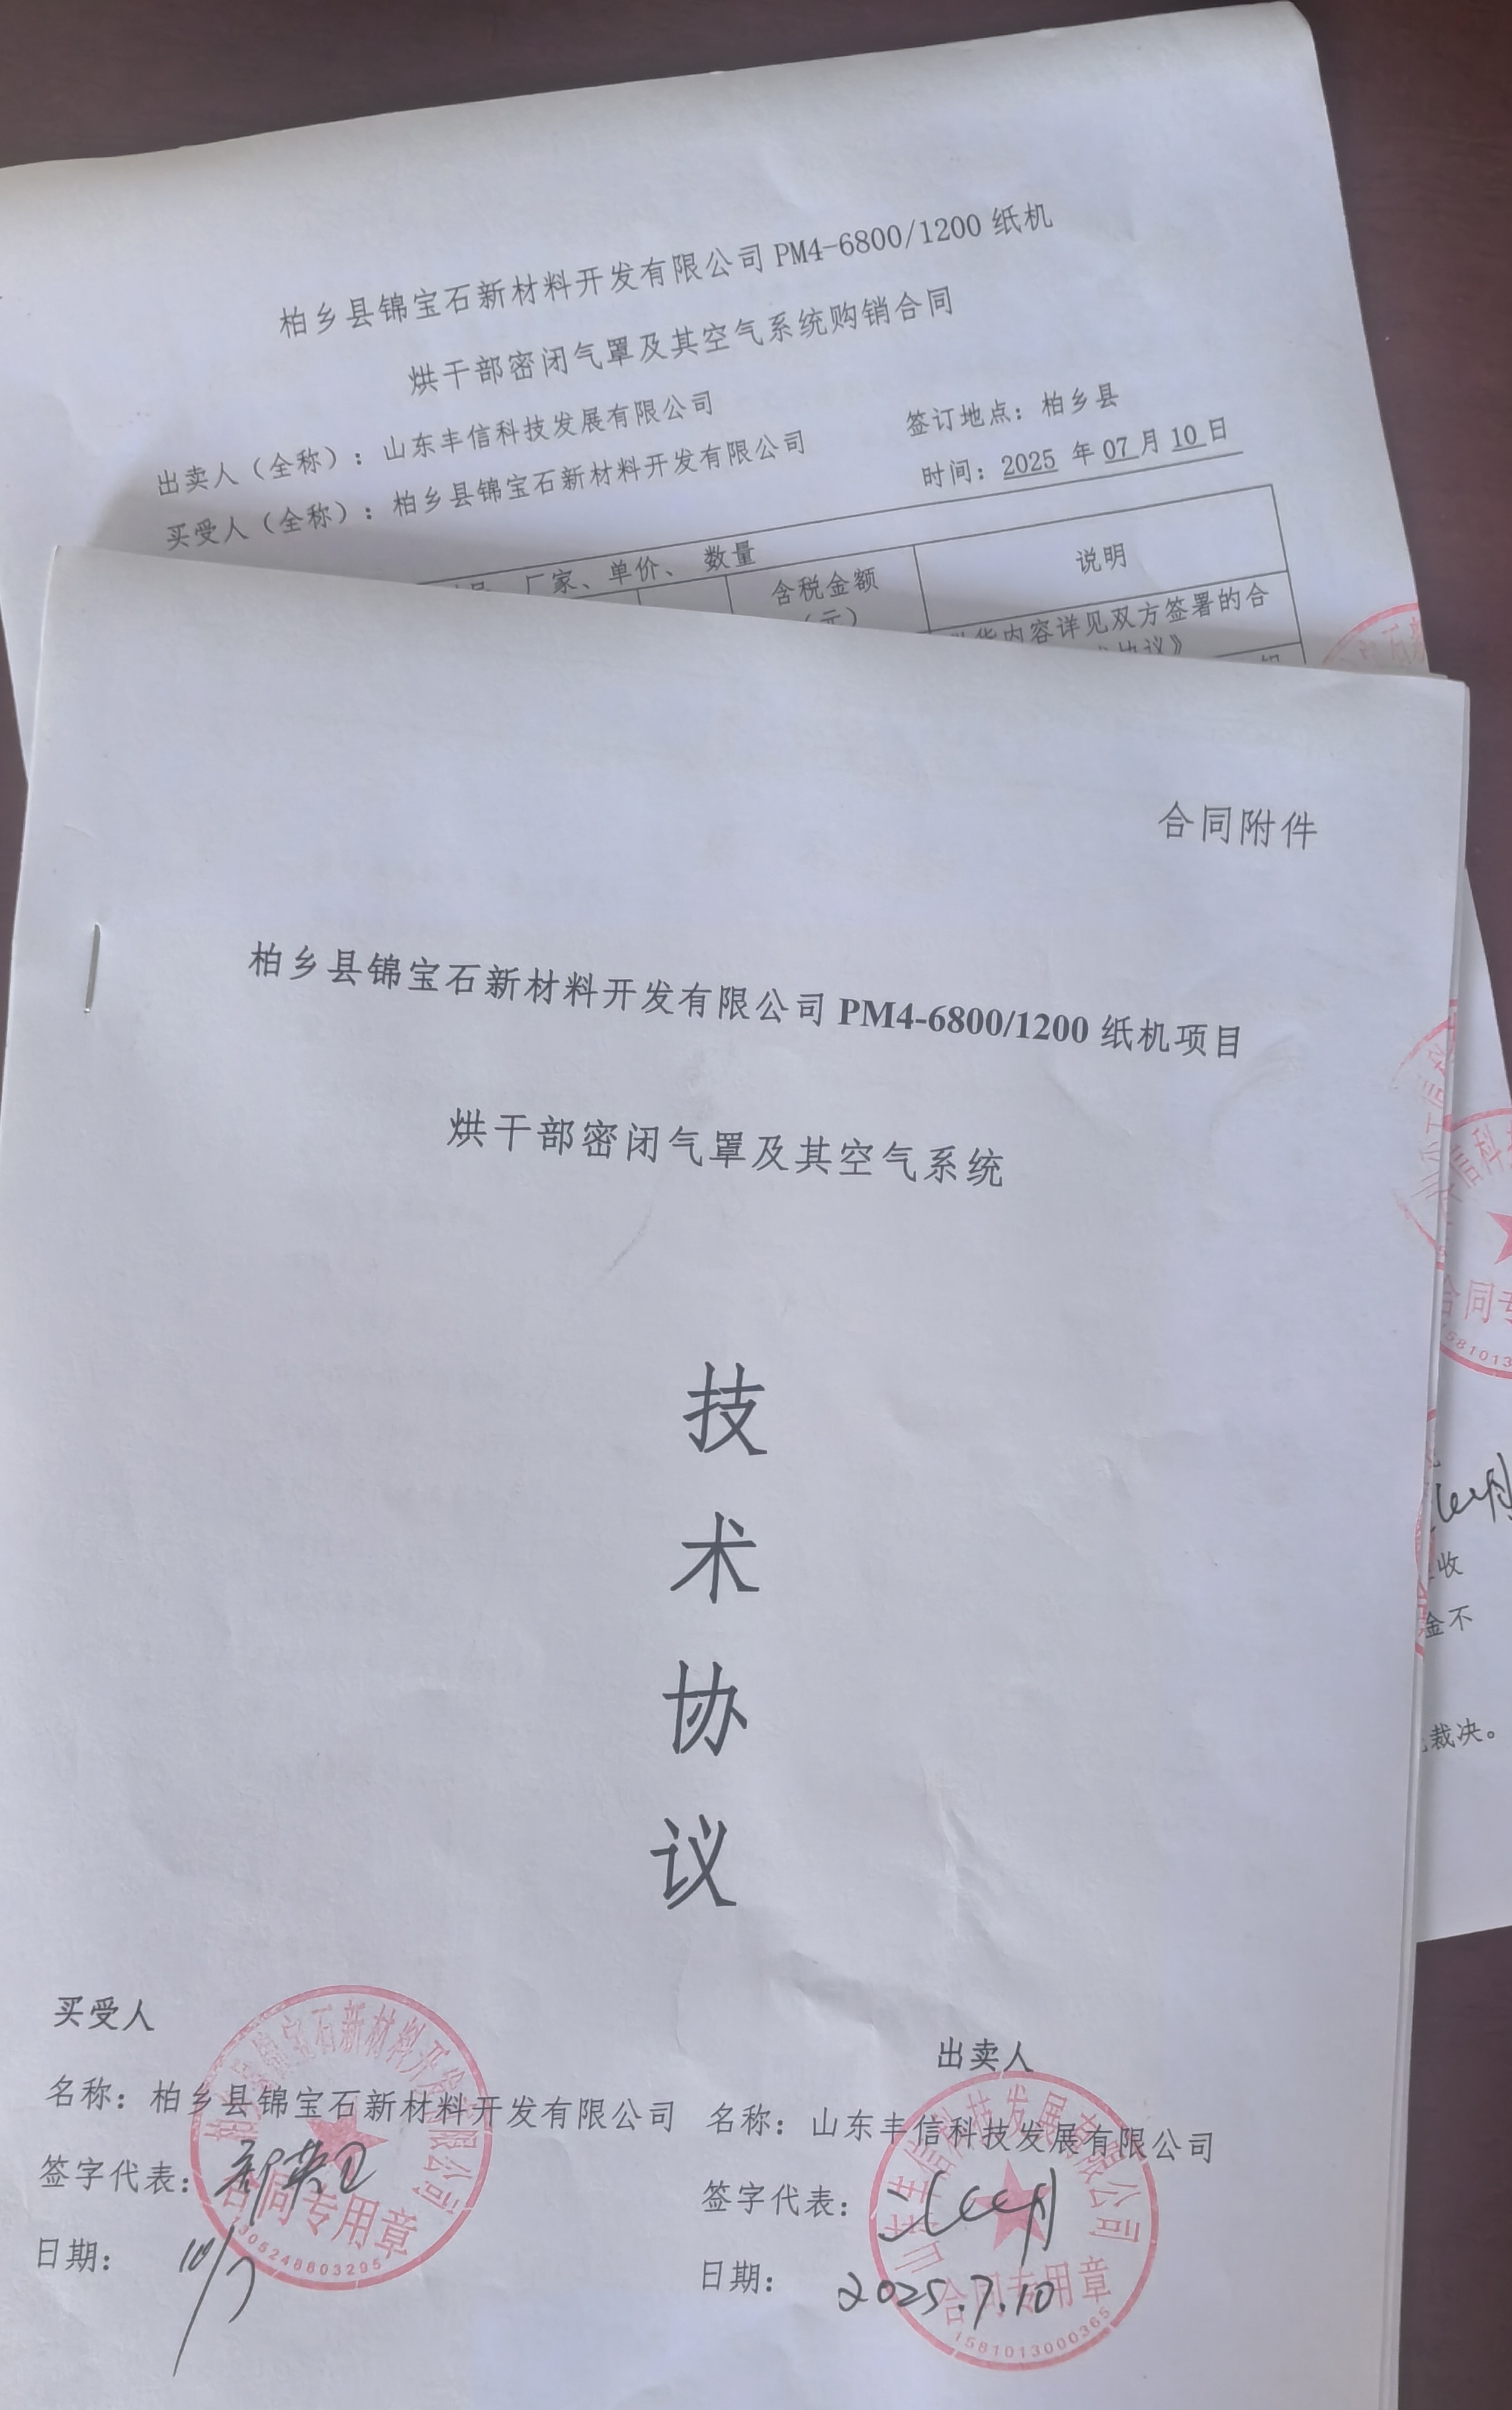 柏乡县锦宝石新材料开发有限公司PM4-6800/1200纸机
烘干部密闭气罩及其空气系统购销合同
出卖人（全称）：山东丰信科技发展有限公司
签订地点：柏乡县
买受人（全称）：柏乡县锦宝石新材料开发有限公司
时间：2025 年 07 月 10 日
厂家、单价、 数量
说明
含税金额
（元）
内容详见双方签署的合
协议》
合同附件
柏乡县锦宝石新材料开发有限公司 PM4-6800/1200 纸机项目
烘干部密闭气罩及其空气系统
技
术
协
议
买受人
名称：柏乡县锦宝石新材料开发有限公司
签字代表：
日期： 10/7
柏乡县锦宝石新材料开发有限公司
合同专用章
出卖人
名称：山东丰信科技发展有限公司
签字代表：
日期： 2025.7.10
山东丰信科技发展有限公司
合同专用章
1581013000365
信科
合同专
收
金不
裁决。